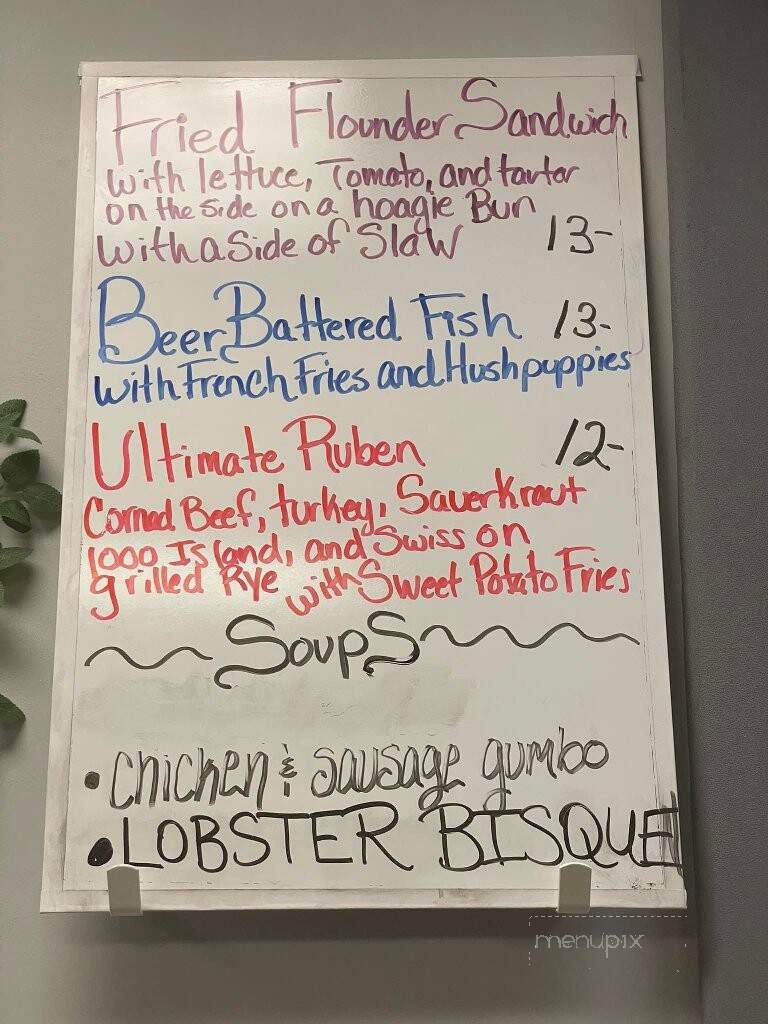 Fried Flounder Sandwich
with lettuce, Tomato, and tartar
on the side on a hoagie Bun
with a side of Slaw 13-
Beer Battered Fish 13-
with French Fries and Hushpuppies
Ultimate Ruben 12-
Corned Beef, turkey, Sauerkraut
1000 Island, and Swiss on
grilled Rye with Sweet Potato Fries
Soups
• chicken & sausage gumbo
• LOBSTER BISQUE
menupix